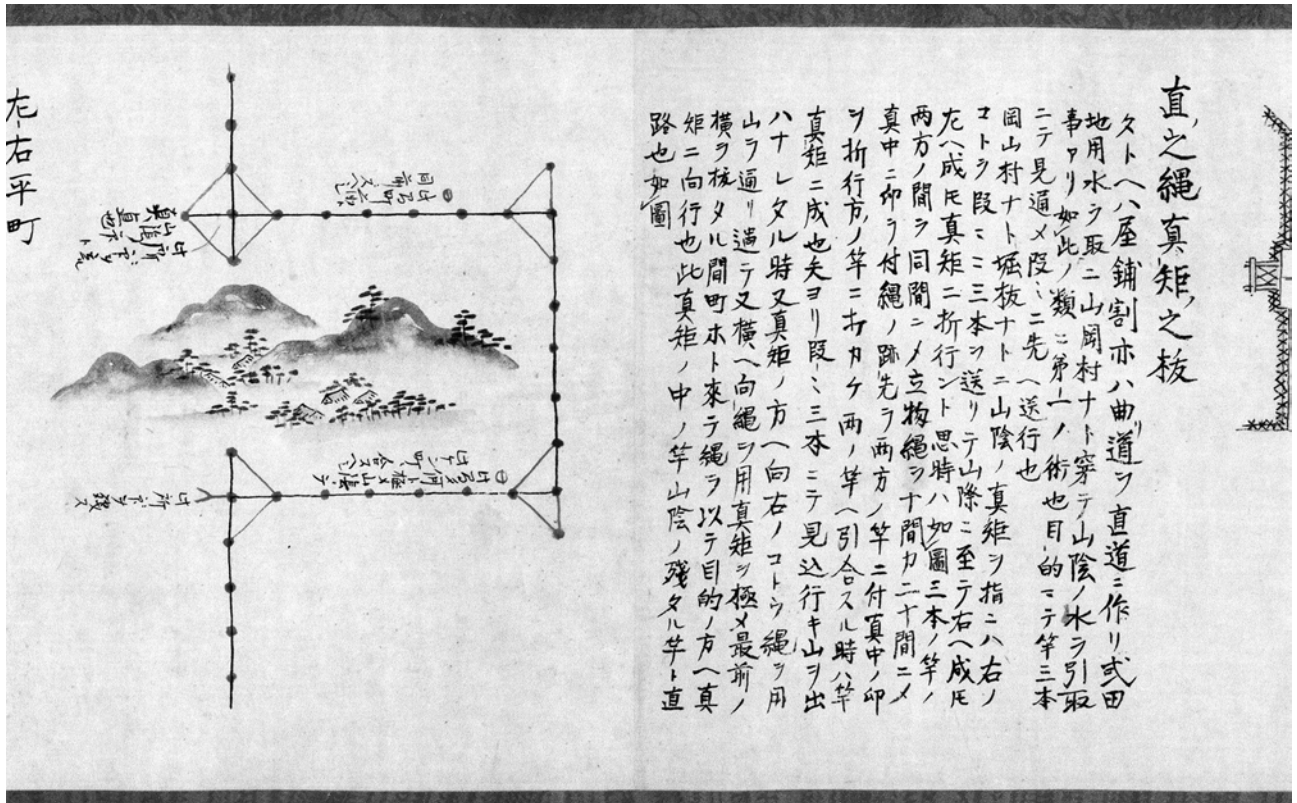 直之縄真矩之枝
タトヘハ屋鋪割亦ハ曲道ヲ直道ニ作リ或田
地用水ヲ取ニ山岡村ナト穿テ山陰ノ水ヲ引取
事アリ如此ノ類ニ第一ノ術也目的ニテ竿三本
ニテ見通メ段〻ニ先ヘ送行也
岡山村ナト堀抜ナトニ山陰ノ真矩ヲ指ニハ右ノ
コトク段〻ニ三本ヲ送リテ山際ニ至テ右ヘ成𪜈
左ヘ成𪜈真矩ニ折行ント思時ハ如圖三本ノ竿ノ
両方ノ間ヲ同間ニメ立物縄ヲナ間カ二十間ニメ
真中ニ印ヲ付縄ノ跡先ヲ両方ノ竿ニ付真中ノ印
ヲ折行方ノ竿ニオカケ両ノ竿ヘ引合スル時ハ竿
真矩ニ成也夫ヨリ段〻三本ニテ見込行キ山ヲ出
ハナレタル時又真矩ノ方ヘ向右ノコトク縄ヲ用
山ヲ通リ過テ又横ヘ向縄ヲ用真矩ヲ極メ最前ノ
横ヲ枝タル間町ホト來テ縄ヲ以テ目的ノ方ヘ真
矩ニ向行也此真矩ノ中ノ竿山陰ノ殘タル竿ト直
路也如圖
左右平町